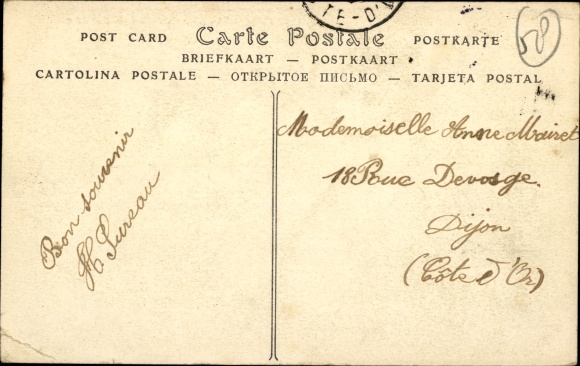 TE-D'
POST CARD Carte Postale POSTKARTE
58
BRIEFKAART — POSTKAART
CARTOLINA POSTALE — ОТКРЫТОЕ ПИСЬМО — TARJETA POSTAL
Bon souvenir
H Sureau
Mademoiselle Anne Mairet
18 Rue Devosge.
Dijon
(Côte d'Or)